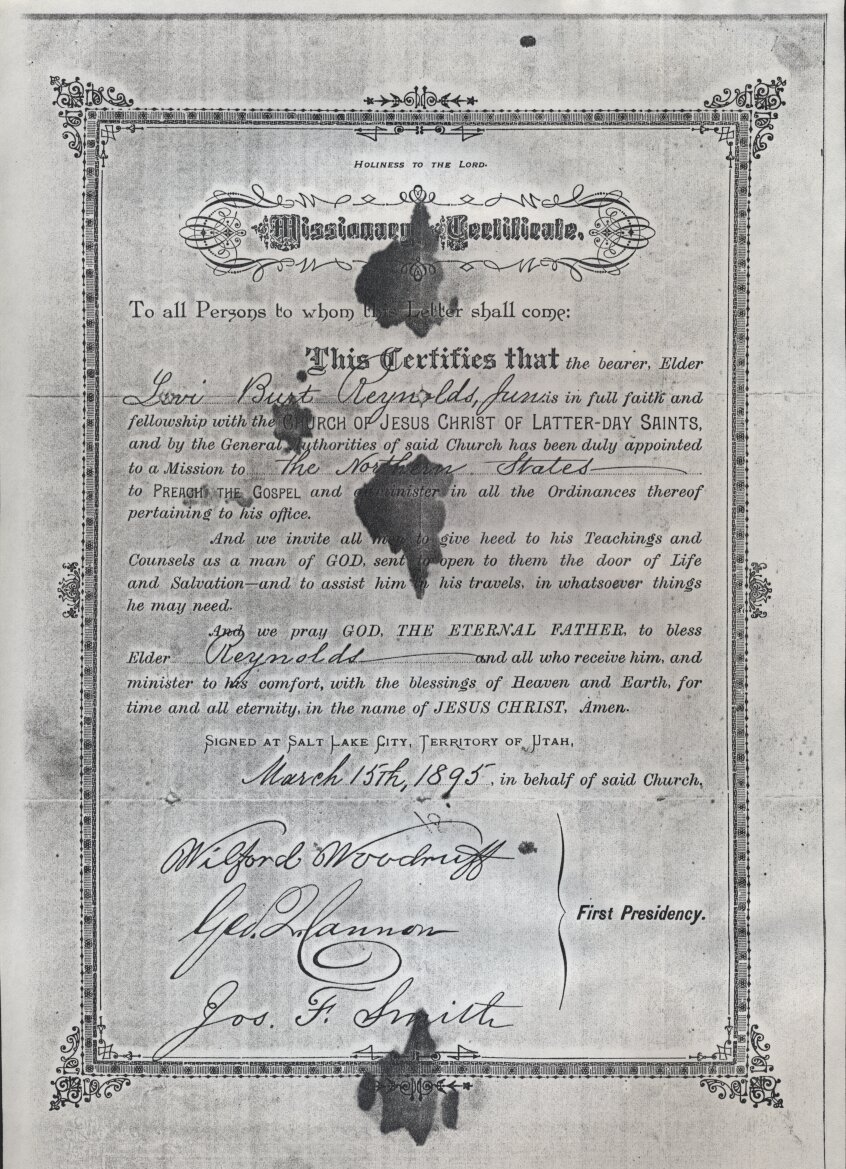 HOLINESS TO THE LORD.
Missionary Certificate.
To all Persons to whom this Letter shall come:
This Certifies that the bearer, Elder
Levi Burt Reynolds, Jun. is in full faith and
fellowship with the CHURCH OF JESUS CHRIST OF LATTER-DAY SAINTS,
and by the General Authorities of said Church has been duly appointed
to a Mission to the Northern States
to PREACH THE GOSPEL and administer in all the Ordinances thereof
pertaining to his office.
And we invite all men to give heed to his Teachings and
Counsels as a man of GOD, sent to open to them the door of Life
and Salvation—and to assist him in his travels, in whatsoever things
he may need.
And we pray GOD, THE ETERNAL FATHER, to bless
Elder Reynolds and all who receive him, and
minister to his comfort, with the blessings of Heaven and Earth, for
time and all eternity, in the name of JESUS CHRIST, Amen.
SIGNED AT SALT LAKE CITY, TERRITORY OF UTAH,
March 15th, 1895, in behalf of said Church,
Wilford Woodruff
Geo. Q. Cannon
First Presidency.
Jos. F. Smith